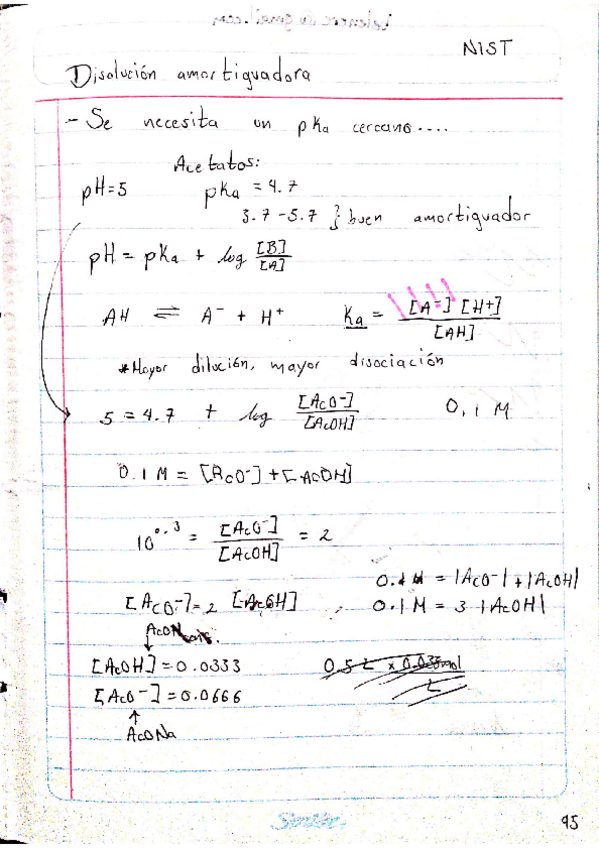 NIST
Disolución amortiguadora
- Se necesita un pKa cercano....
Acetatos:
pH=5 pKa = 4.7
3.7-5.7 } buen amortiguador
pH = pKa + log [B]/[A]
AH ⇌ A⁻ + H⁺ Ka = [A⁻] [H+]/[AH]
*Mayor dilución, mayor disociación
5 = 4.7 + log [AcO⁻]/[AcOH] 0,1 M
0.1 M = [AcO⁻]+[AcOH]
10^0.3 = [AcO⁻]/[AcOH] = 2
0.1 M = |AcO⁻|+|AcOH|
[AcO⁻]=2 [AcOH] 0.1 M = 3 |AcOH|
[AcOH]=0.0333
[AcO⁻]=0.0666
↑
AcONa
Scribe
95